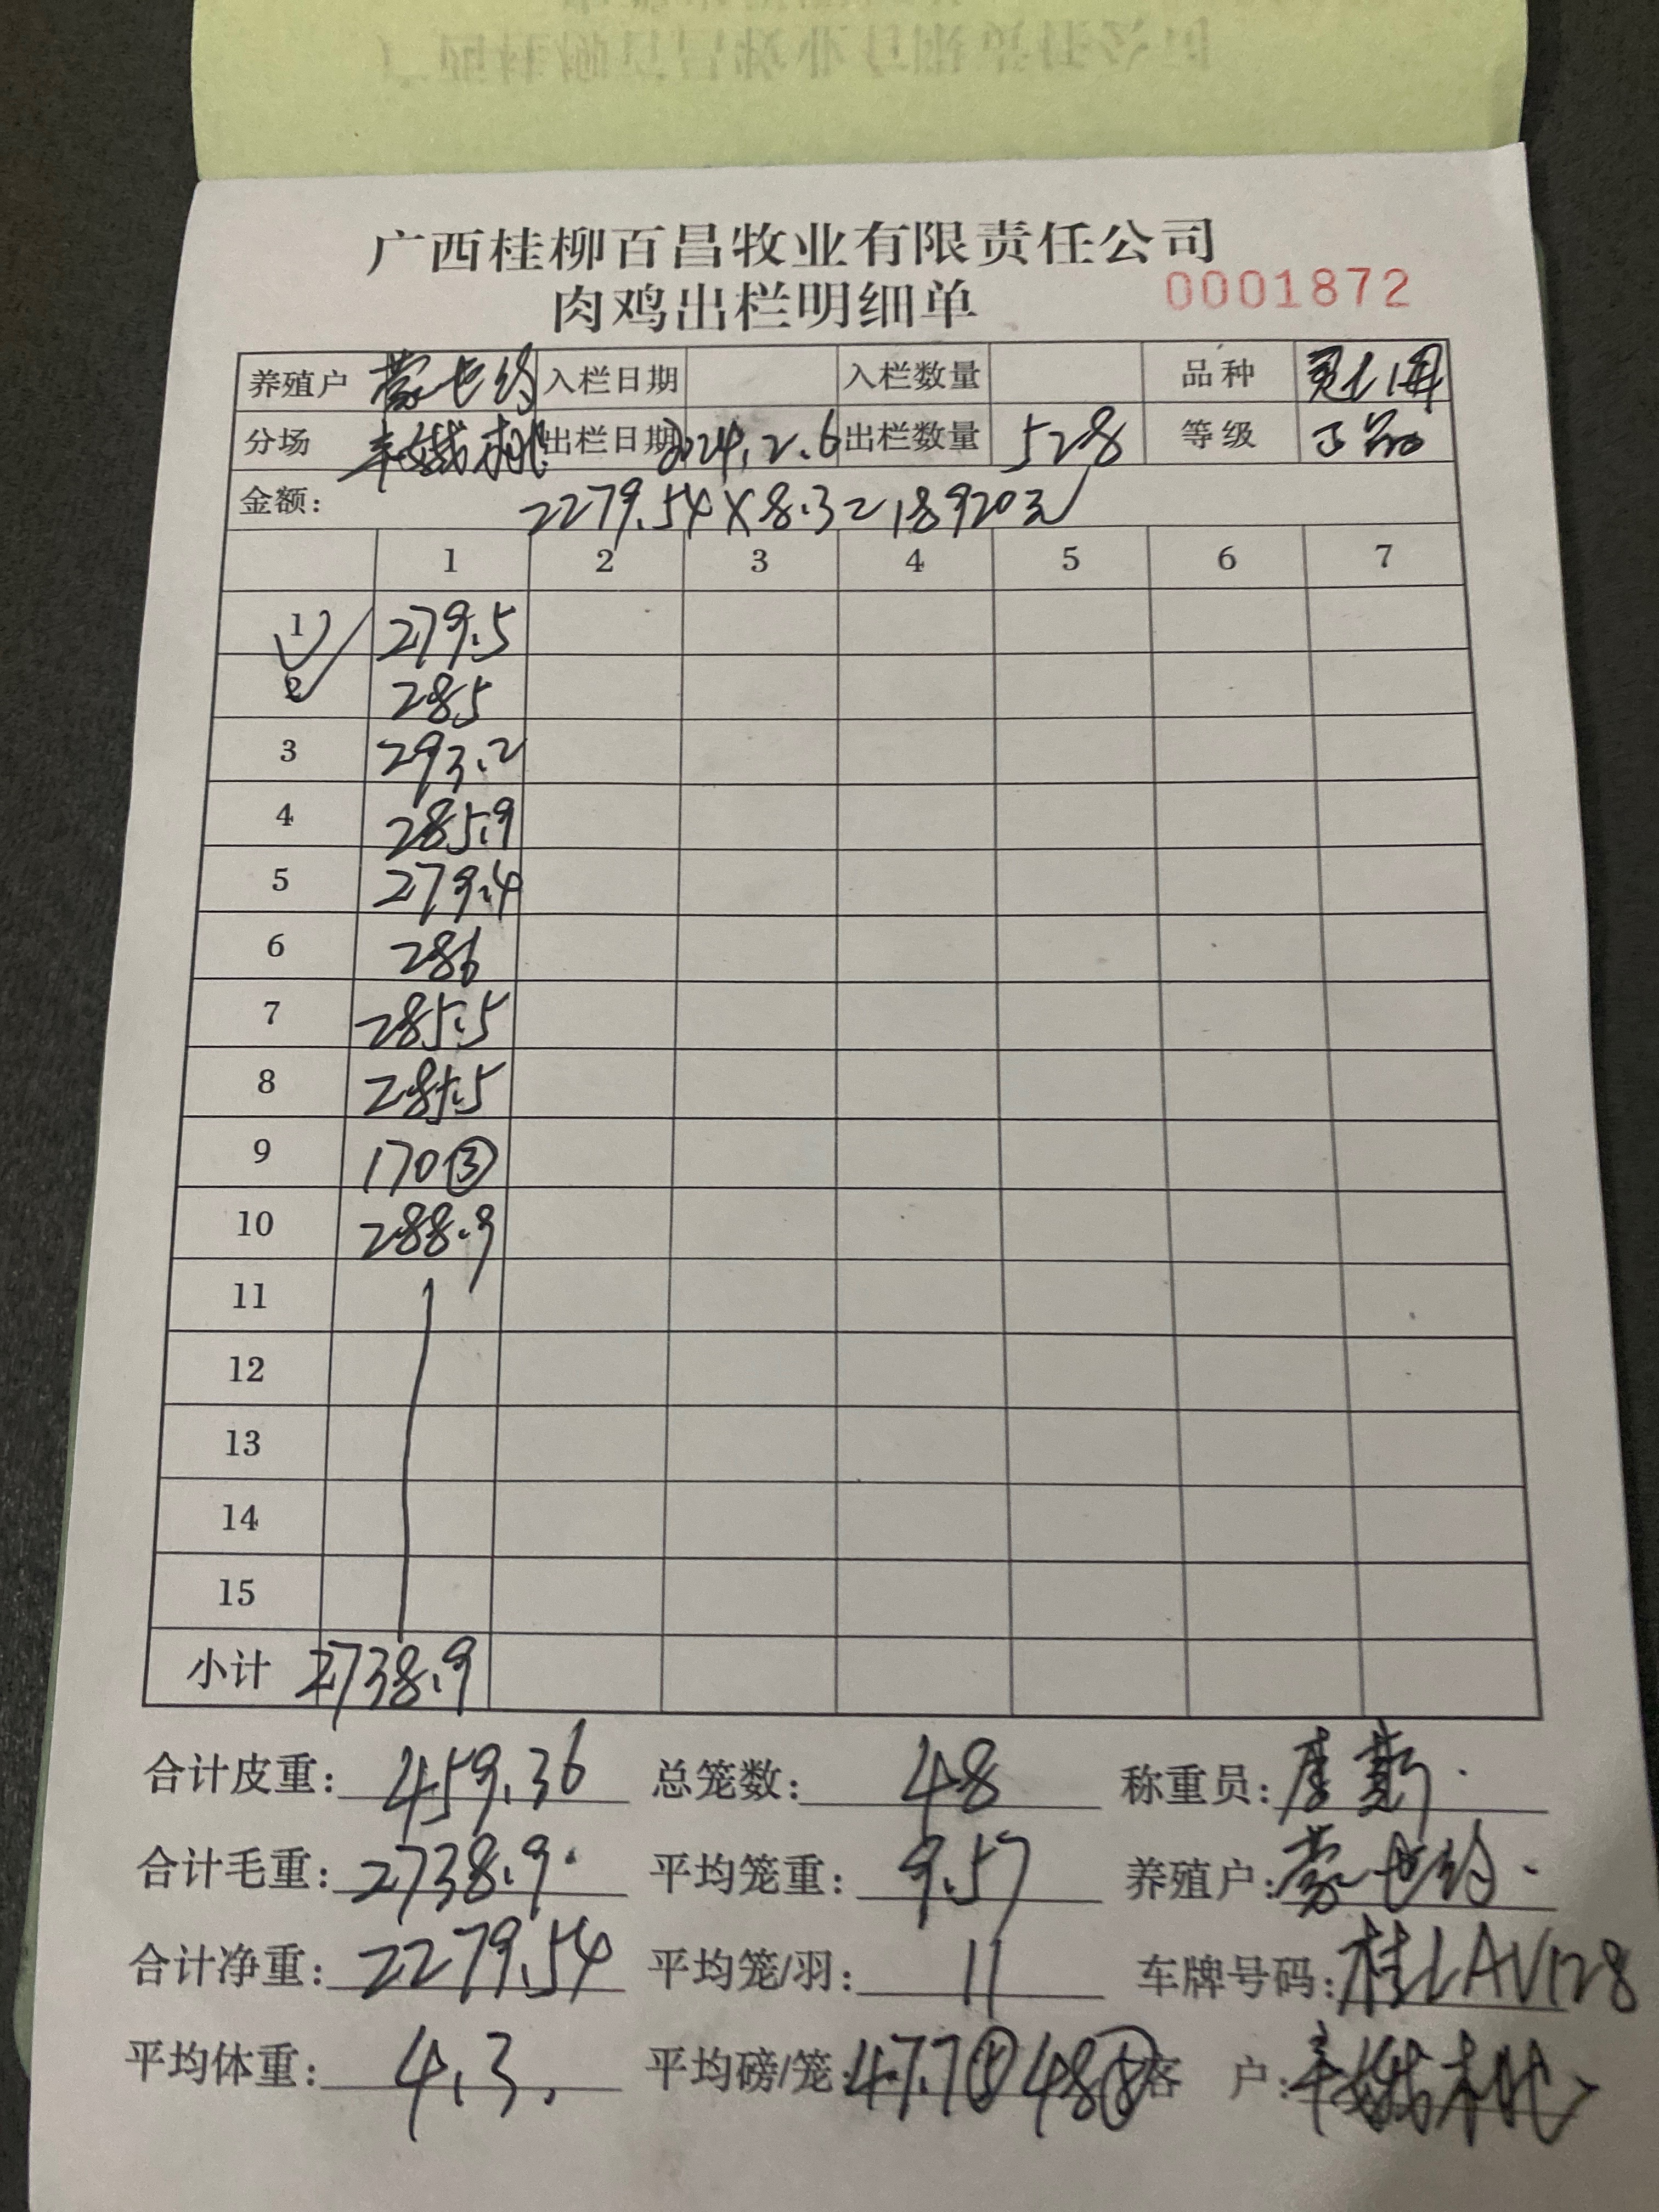 广西桂柳百昌牧业有限责任公司
肉鸡出栏明细单 0001872
养殖户 蒙 入栏日期 入栏数量 品种
分场 出栏日期 2024.2.6 出栏数量 528 等级 正品
金额: 2279.54×8.3=18920元
1 2 3 4 5 6 7
1 279.5
2 285
3 293.2
4 285.9
5 279.4
6 286
7 285.5
8 285.5
9 170③
10 288.9
11
12
13
14
15
小计 2738.9
合计皮重: 459.36 总笼数: 48 称重员:
合计毛重: 2738.9 平均笼重: 9.57 养殖户: 蒙
合计净重: 2279.54 平均笼/羽: 11 车牌号码: 桂LAV128
平均体重: 4.3 平均磅/笼: 47.7 48 客户: